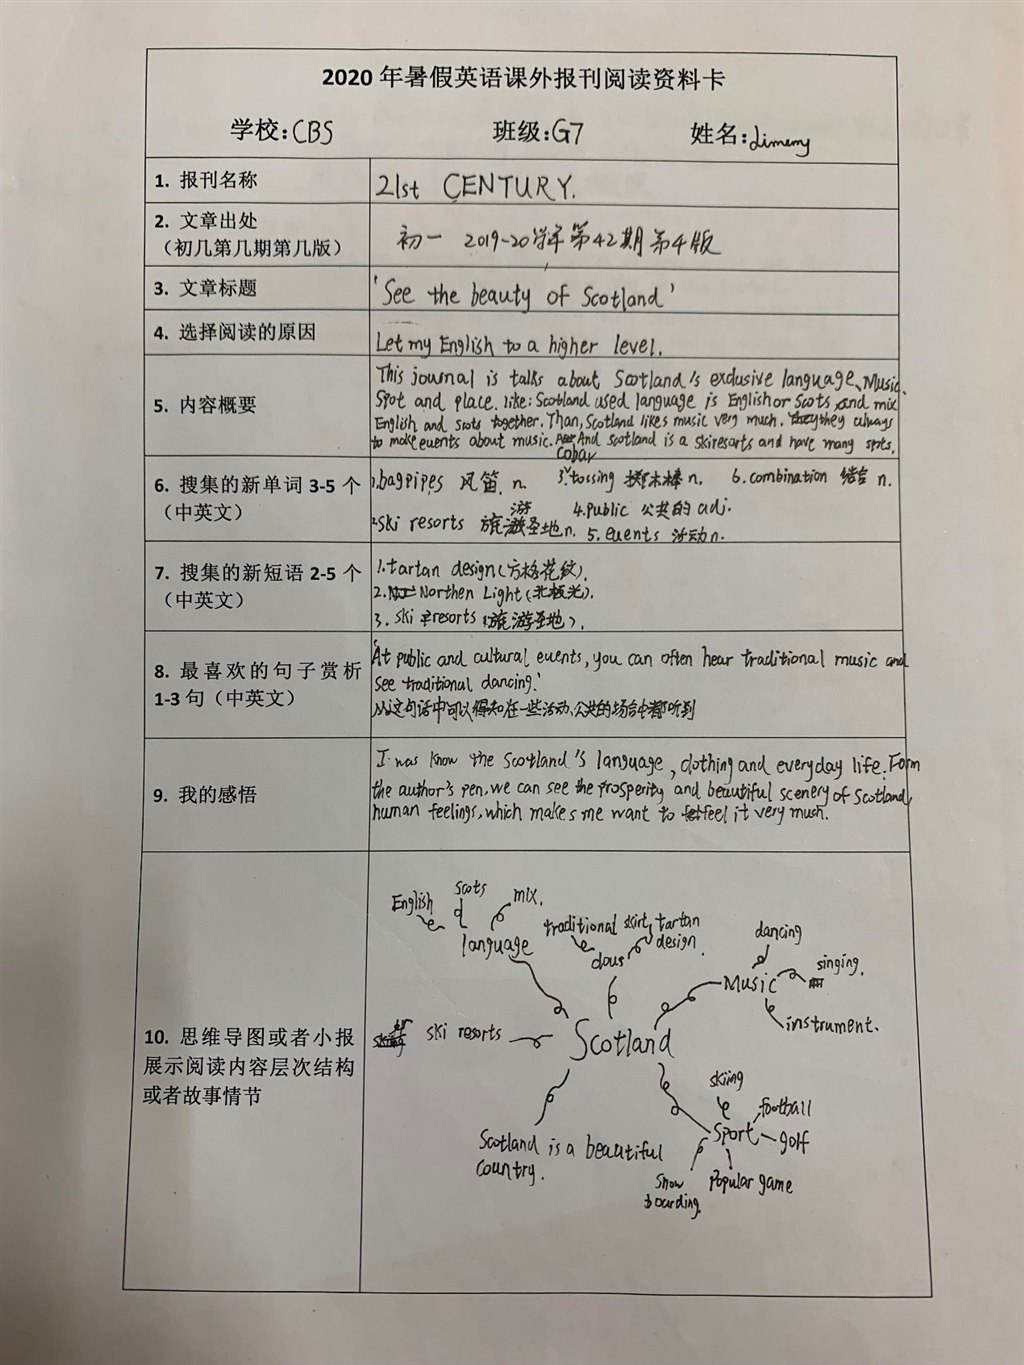 2020 年暑假英语课外报刊阅读资料卡
学校:CBS 班级:G7 姓名:
1. 报刊名称
21st CENTURY.
2. 文章出处
(初几第几期第几版)
初一 2019-20学年第42期第4版
3. 文章标题
'See the beauty of Scotland'
4. 选择阅读的原因
Let my English to a higher level.
5. 内容概要
This journal is talks about Scotland's exclusive language、Music、
Spot and place. like: Scotland used language is English or Scots and mix
English and scots together. Than, Scotland likes music very much. they always
to make events about music. And scotland is a skiresorts and have many spots.
6. 搜集的新单词 3-5 个
(中英文)
1.bagpipes 风笛 n. 3.tossing 木棒 n. 6.combination 结合 n.
2.ski resorts 旅游圣地n. 4.public 公共的 adj.
5.events 活动n.
7. 搜集的新短语 2-5 个
(中英文)
1.tartan design(方格花纹).
2. Northen Light(北极光).
3. ski resorts (旅游圣地).
8. 最喜欢的句子赏析
1-3 句(中英文)
'At public and cultural events, you can often hear traditional music and
see traditional dancing.'
从这句话中可以得知在一些活动、公共的场合中都听到
9. 我的感悟
I was know the Scotland's language, clothing and everyday life. Form
the author's pen, we can see the prosperity and beautiful scenery of Scotland,
human feelings, which makes me want to feel it very much.
10. 思维导图或者小报
展示阅读内容层次结构
或者故事情节
English
Scots
mix.
language
traditional skirt
tartan
design.
clous
dancing
singing.
Music
instrument.
ski resorts
Scotland
skiing
football
Sport
golf
Scotland is a beautiful
country.
Snow
boarding.
Popular game